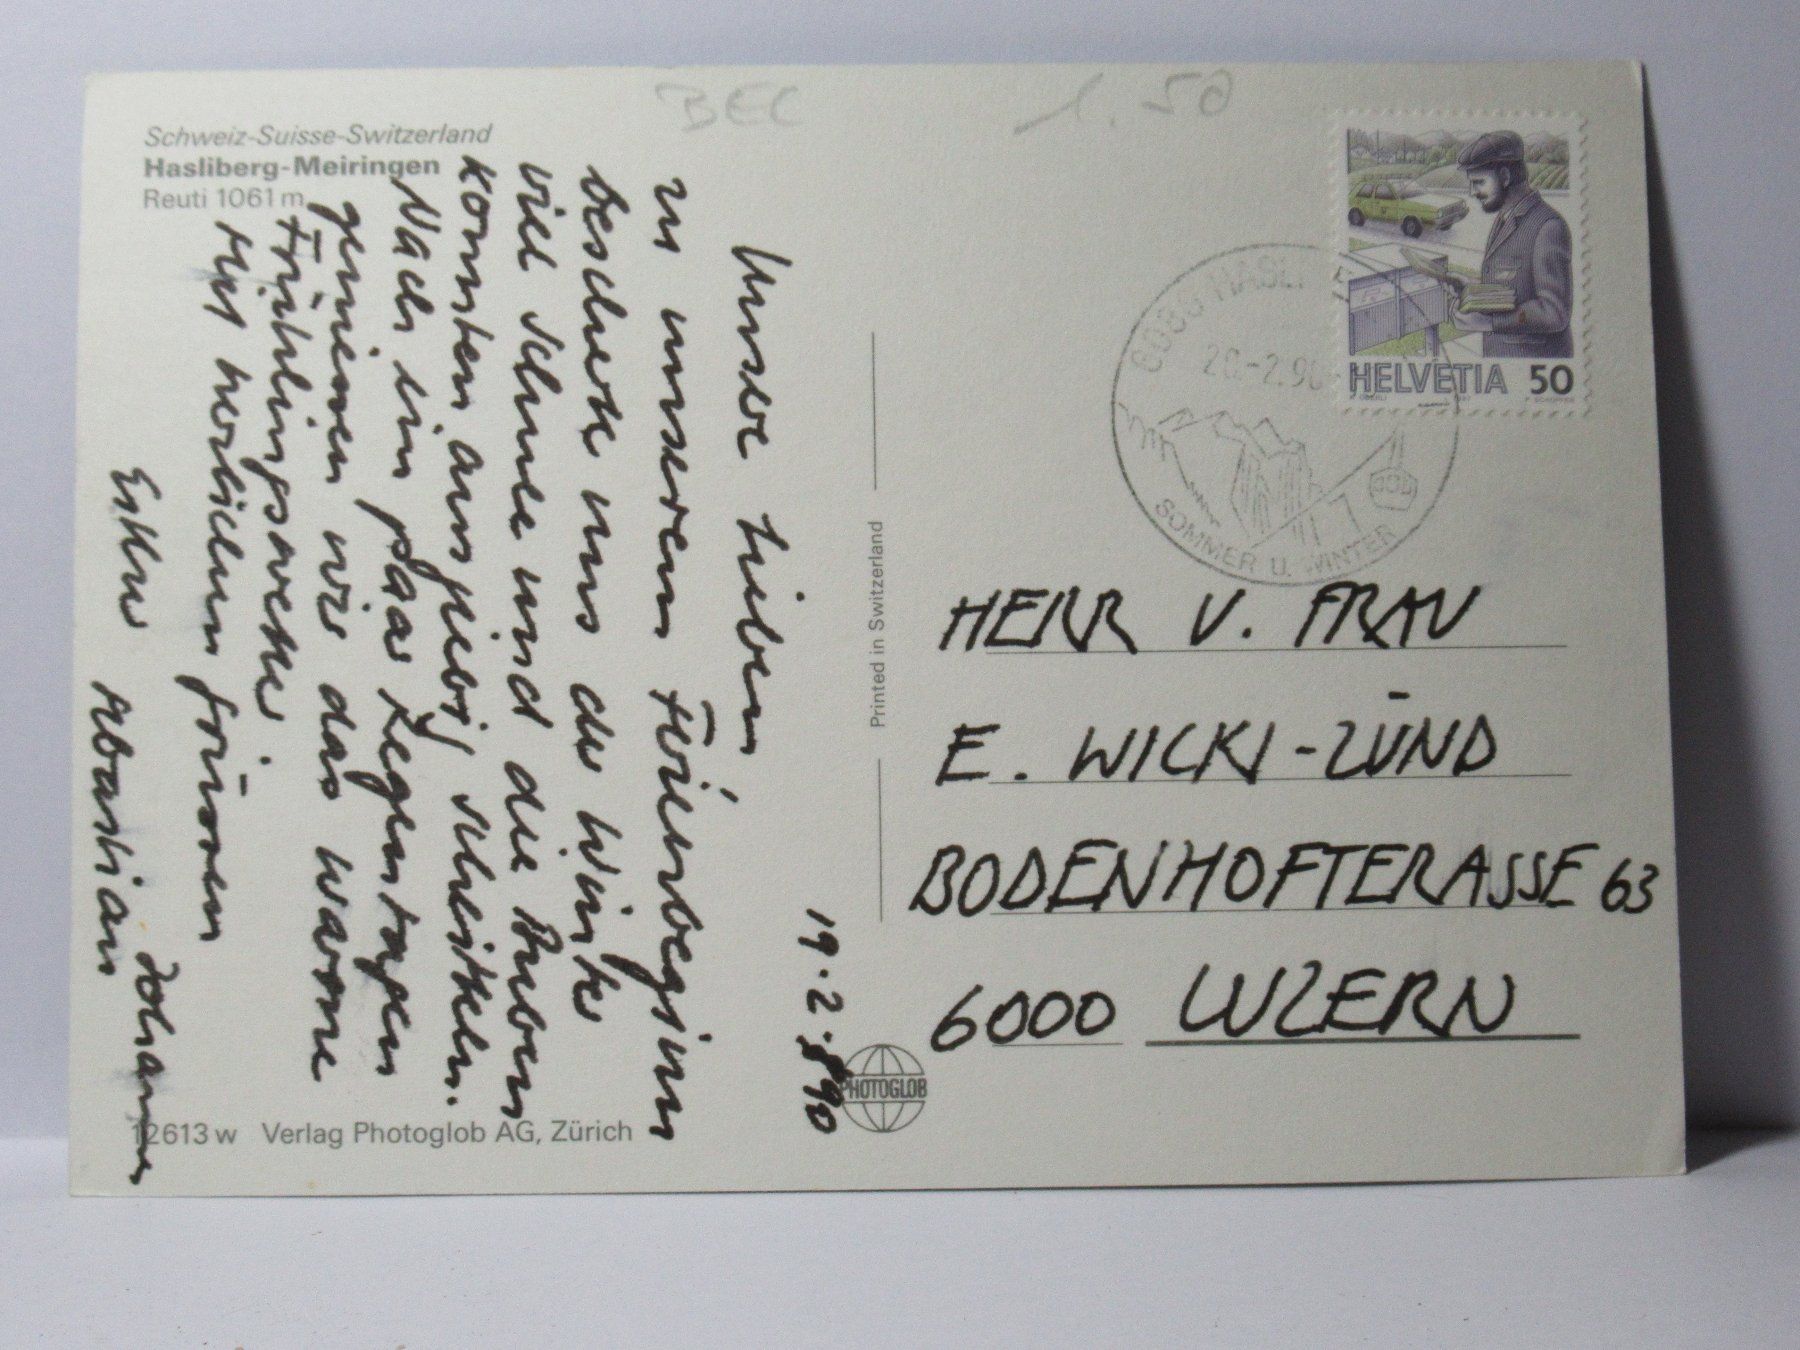 BEC
1.50
Schweiz-Suisse-Switzerland
Hasliberg-Meiringen
Reuti 1061 m
19.2.90
Unsere Lieben
zu unserem Ferienbeginn
bescherte uns der Winter
viel Schnee und die Buben
konnten ausgiebig schlitteln.
Nach ein paar Regentagen
geniessen wir das warme
Frühlingswetter.
Mit herzlichen Grüssen
Esther
Johannes
Sebastian
12613 w Verlag Photoglob AG, Zürich
Printed in Switzerland
PHOTOGLOB
HELVETIA 50
6083 HASLIBERG
20.-2.90
SOMMER U. WINTER
HERR U. FRAU
E. WICKI-ZÜND
BODENHOFTERASSE 63
6000 LUZERN